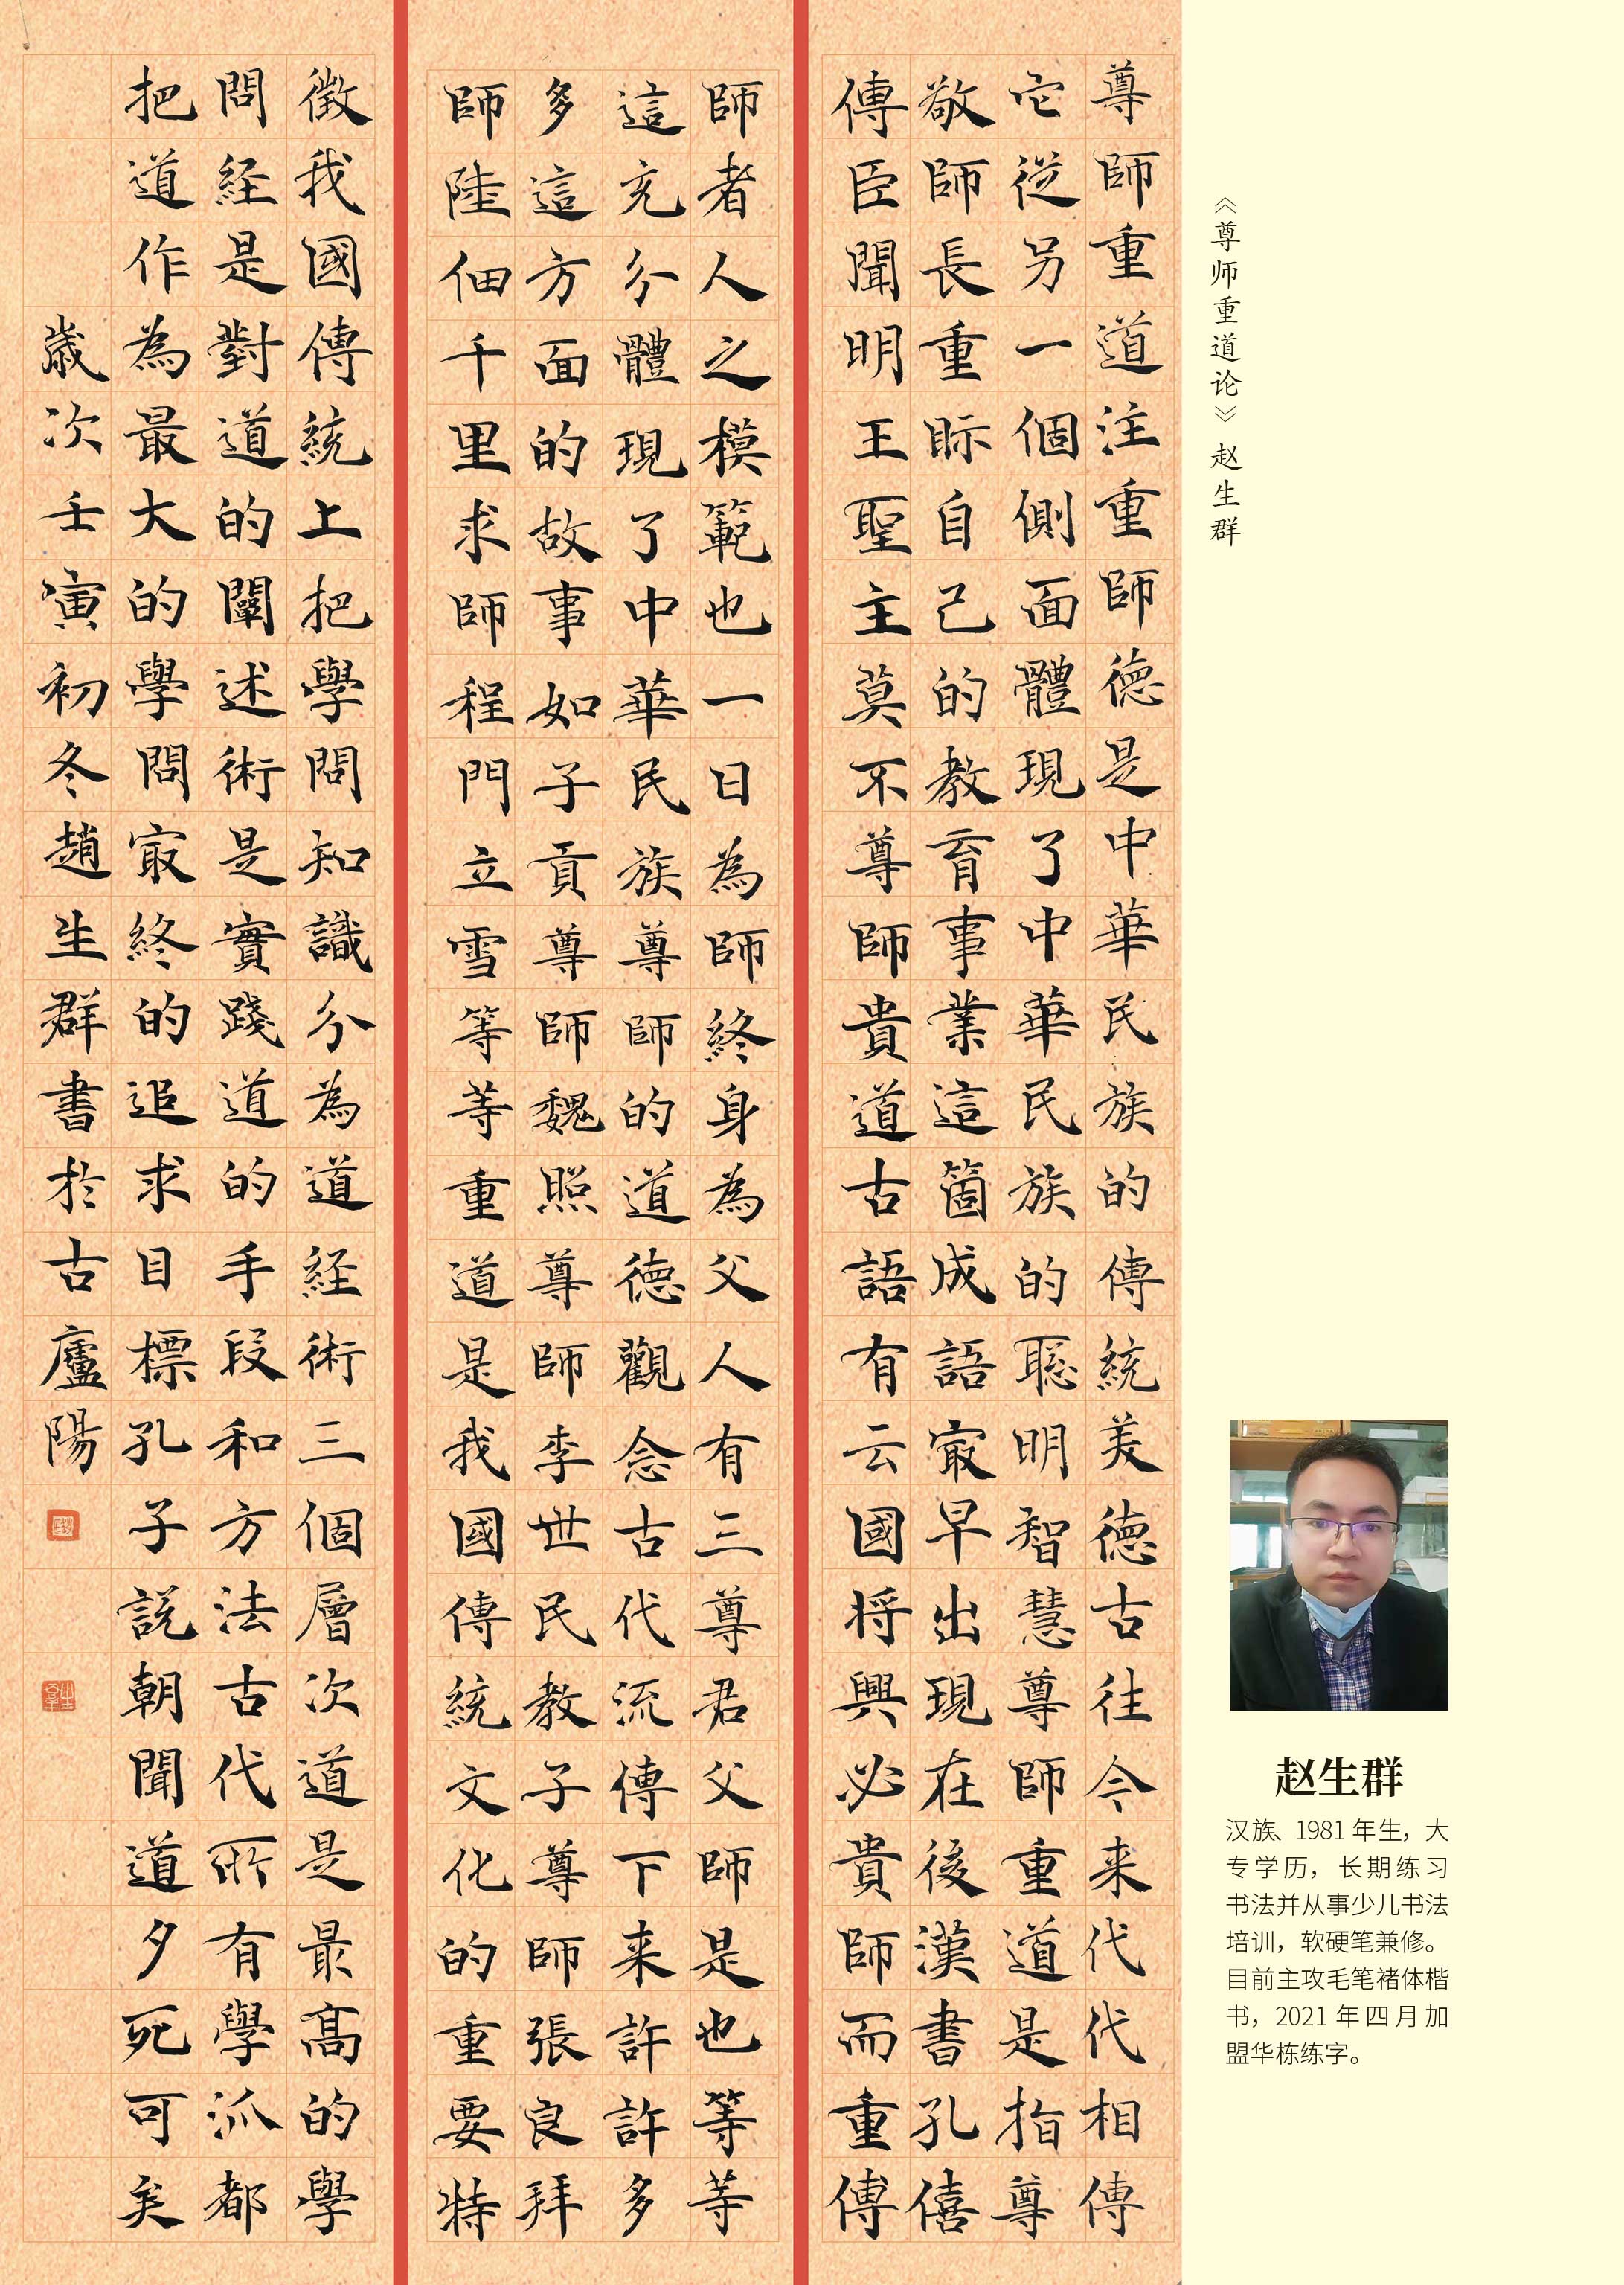 《尊师重道论》赵生群
尊師重道注重師德是中華民族的傳統美德古往今来代代相傳
它從另一個側面體現了中華民族的聰明智慧尊師重道是指尊
敬師長重眎自己的教育事業這箇成語冣早出現在後漢書孔僖
傳臣聞明王聖主莫不尊師貴道古語有云國将興必貴師而重傳
師者人之模範也一日為師終身為父人有三尊君父師是也等等
這充分體現了中華民族尊師的道德觀念古代流傳下来許許多
多這方面的故事如子貢尊師魏照尊師李世民教子尊師張良拜
師陸佃千里求師程門立雪等等重道是我國傳統文化的重要特
徵我國傳統上把學問知識分為道経術三個層次道是最髙的學
問経是對道的闡述術是實踐道的手段和方法古代所有學派都
把道作為最大的學問冣終的追求目標孔子説朝聞道夕死可矣
歲次壬寅初冬趙生群書於古廬陽
赵生群
汉族、1981年生，大
专学历，长期练习
书法并从事少儿书法
培训，软硬笔兼修。
目前主攻毛笔褚体楷
书，2021年四月加
盟华栋练字。